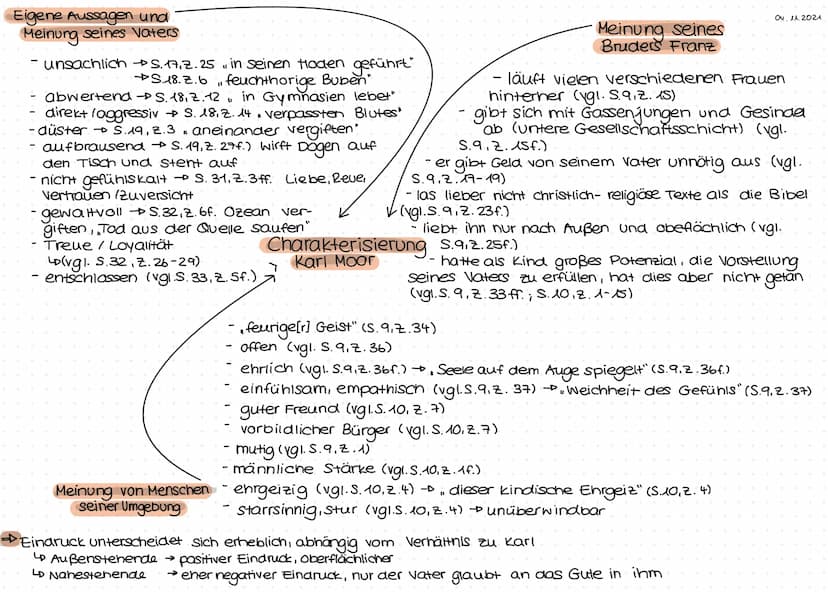 Eigene Aussagen und
Meinung seines Vaters
- unsachlich → S.17, Z.25 „in seinen Hoden geführt"
→ S.18, Z.6 „feuchthorige Buben"
- abwertend → S.18, Z.12 „in Gymnasien lebet"
- direkt/aggressiv → S.18, Z.14 „verpassten Blutes"
- düster → S.19, Z.3 „aneinander vergiften"
- aufbrausend → S.19, Z.29f.) wirft Dogen auf
den Tisch und steht auf
- nicht gefühlskalt → S.31, Z.3ff. Liebe, Reue,
Vertrauen/Zuversicht
- gewaltvoll → S.32, Z.6f. Ozean ver-
giften, „Tod aus der Quelle saufen"
- Treue / Loyalität
↳ (vgl. S.32, Z.26-29)
- entschlassen (vgl S.33, Z.5f.)
04.11.2021
Meinung seines
Bruders Franz
- läuft vielen verschiedenen Frauen
hinterher (vgl. S.9, Z.15)
- gibt sich mit Gassenjungen und Gesindel
ab (untere Gesellschaftsschicht) (vgl.
S.9, Z.15f.)
- er gibt Geld von seinem Vater unnötig aus (vgl.
S.9, Z.17-19)
- las lieber nicht christlich-religiöse Texte als die Bibel
(vgl. S.9, Z.23f.)
- liebt ihn nur nach Außen und obeflächlich (vgl.
S.9, Z.25f.)
- hatte als Kind großes Potenzial, die Vorstellung
seines Vaters zu erfüllen, hat dies aber nicht getan
(vgl. S.9, Z.33ff.; S.10, Z.1-15)
Charakterisierung
Karl Moor
- „feurige[r] Geist" (S.9, Z.34)
- offen (vgl. S.9, Z.36)
- ehrlich (vgl. S.9, Z.36f.) → „Seele auf dem Auge spiegelt" (S.9, Z.36f.)
- einfühlsam, empathisch (vgl. S.9, Z.37) → „Weichheit des Gefühls" (S.9, Z.37)
- guter Freund (vgl. S.10, Z.7)
- vorbildlicher Bürger (vgl. S.10, Z.7)
- mutig (vgl. S.9, Z.1)
- männliche Stärke (vgl. S.10, Z.1f.)
- ehrgeizig (vgl. S.10, Z.4) → „dieser kindische Ehrgeiz" (S.10, Z.4)
- starrsinnig, stur (vgl. S.10, Z.4) → unüberwindbar
Meinung von Menschen
seiner Umgebung
→ Eindruck unterscheidet sich erheblich, abhängig vom Verhältnis zu Karl
↳ Außenstehende → positiver Eindruck, oberflächlicher
↳ Nahestehende → eher negativer Eindruck, nur der Vater glaubt an das Gute in ihm